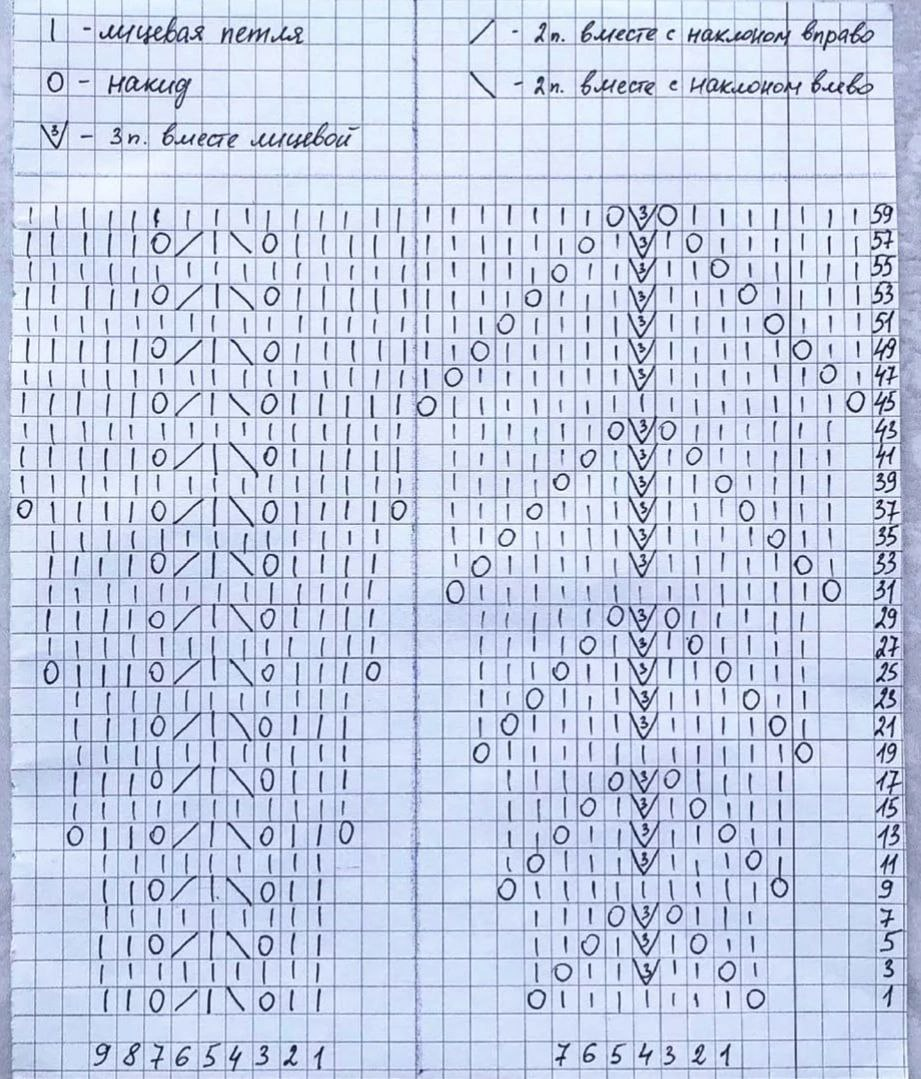 | - лицевая петля
/ - 2п. вместе с наклоном вправо
O - накид
\ - 2п. вместе с наклоном влево
3 - 3п. вместе лицевой
59
57
55
53
51
49
47
45
43
41
39
37
35
33
31
29
27
25
23
21
19
17
15
13
11
9
7
5
3
1
9 8 7 6 5 4 3 2 1
7 6 5 4 3 2 1